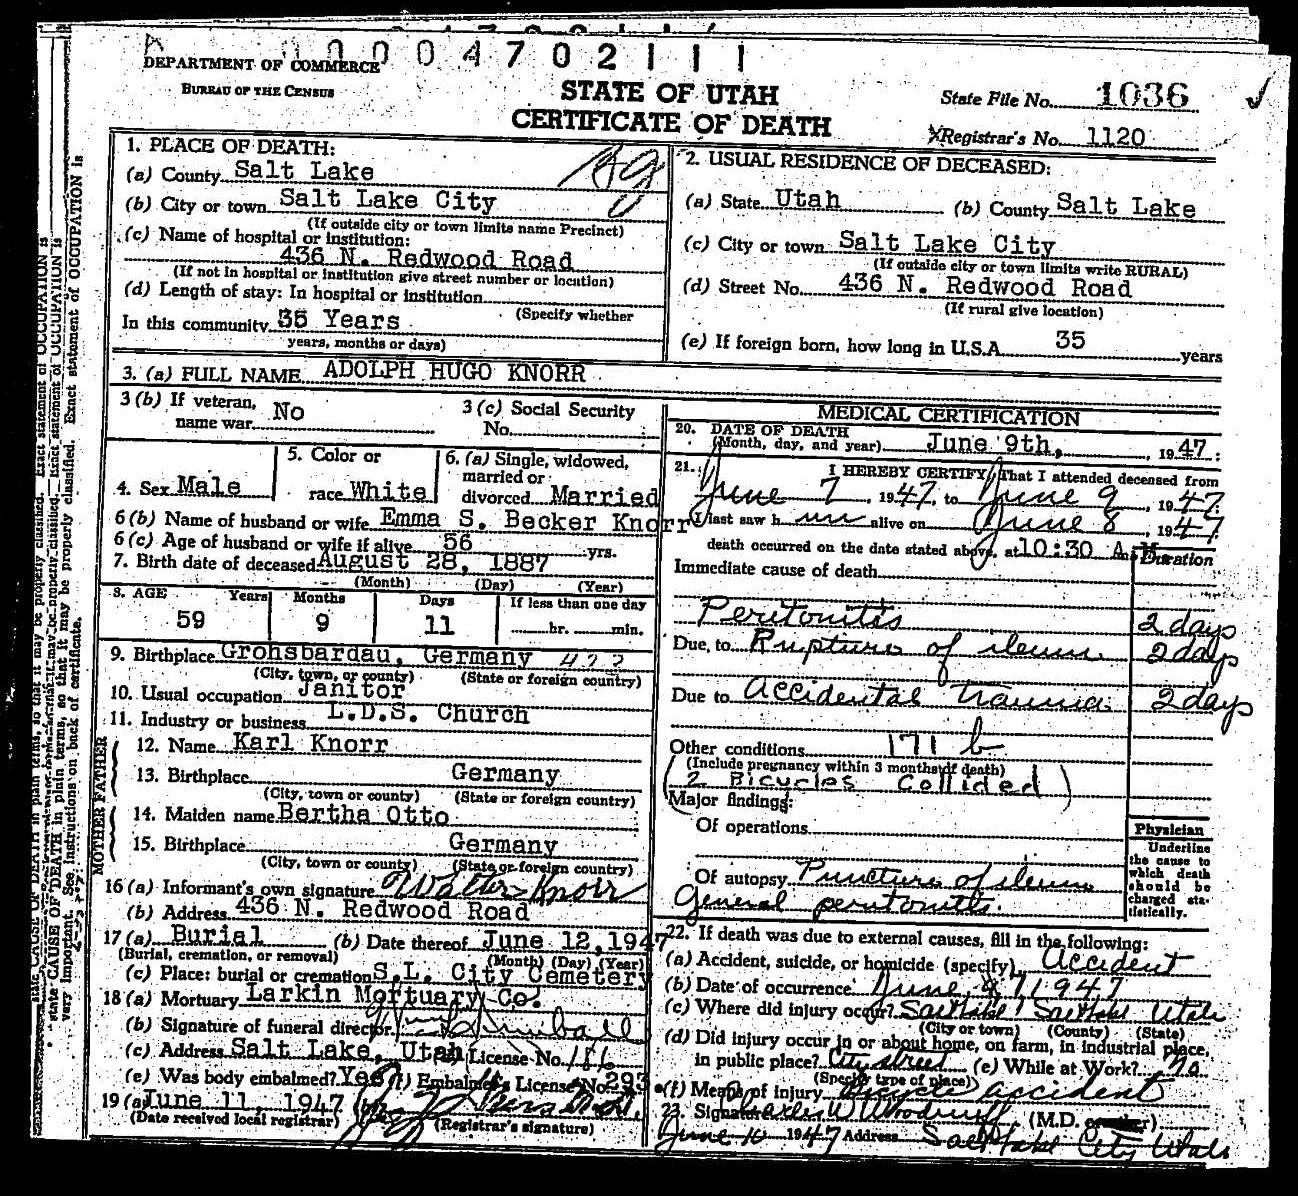 0004702111
DEPARTMENT OF COMMERCE
BUREAU OF THE CENSUS
STATE OF UTAH
CERTIFICATE OF DEATH
State File No. 1036
Registrar's No. 1120
1. PLACE OF DEATH:
(a) County Salt Lake
(b) City or town Salt Lake City
(If outside city or town limits name Precinct)
(c) Name of hospital or institution:
436 N. Redwood Road
(If not in hospital or institution give street number or location)
(d) Length of stay: In hospital or institution
(Specify whether
In this community 35 Years
years, months or days)
2. USUAL RESIDENCE OF DECEASED:
(a) State Utah (b) County Salt Lake
(c) City or town Salt Lake City
(If outside city or town limits write RURAL)
(d) Street No. 436 N. Redwood Road
(If rural give location)
(e) If foreign born, how long in U.S.A. 35 years
3. (a) FULL NAME ADOLPH HUGO KNORR
3 (b) If veteran, name war No
3 (c) Social Security No.
4. Sex Male
5. Color or race White
6. (a) Single, widowed, married or divorced Married
6 (b) Name of husband or wife Emma S. Becker Knorr
6 (c) Age of husband or wife if alive 56 yrs.
7. Birth date of deceased August 28, 1887
(Month) (Day) (Year)
8. AGE Years Months Days If less than one day
59 9 11 hr. min.
9. Birthplace Grohsbardau, Germany
(City, town, or county) (State or foreign country)
10. Usual occupation Janitor
11. Industry or business L.D.S. Church
FATHER
12. Name Karl Knorr
13. Birthplace Germany
(City, town or county) (State or foreign country)
MOTHER
14. Maiden name Bertha Otto
15. Birthplace Germany
(City, town or county) (State or foreign country)
16 (a) Informant's own signature Walter Knorr
(b) Address 436 N. Redwood Road
17 (a) Burial (b) Date thereof June 12, 1947
(Burial, cremation, or removal) (Month) (Day) (Year)
(c) Place: burial or cremation S.L. City Cemetery
18 (a) Mortuary Larkin Mortuary Co.
(b) Signature of funeral director
(c) Address Salt Lake, Utah License No. 186
(e) Was body embalmed? Yes (f) Embalmer's License No. 293
19 (a) June 11, 1947
(Date received local registrar) (Registrar's signature)
MEDICAL CERTIFICATION
20. DATE OF DEATH
(Month, day, and year) June 9th, 1947
21. I HEREBY CERTIFY, That I attended deceased from
June 7, 1947 to June 9, 1947
I last saw him alive on June 8, 1947
death occurred on the date stated above, at 10:30 A. M.
Duration
Immediate cause of death
Peritonitis 2 days
Due to Rupture of ileum 2 days
Due to Accidental trauma 2 days
Other conditions 171 b
(Include pregnancy within 3 months of death)
(2 Bicycles Collided)
Major findings:
Of operations
Of autopsy Puncture of ileum
General peritonitis.
Physician
Underline the cause to which death should be charged statistically.
22. If death was due to external causes, fill in the following:
(a) Accident, suicide, or homicide (specify) Accident
(b) Date of occurrence June 1947
(c) Where did injury occur? Salt Lake Salt Lake Utah
(City or town) (County) (State)
(d) Did injury occur in or about home, on farm, in industrial place, in public place? City street (e) While at Work? no
(Specify type of place)
(f) Means of injury Bicycle accident
23. Signature W Woodruff (M.D. or other)
June 10 1947 Address Salt Lake City Utah